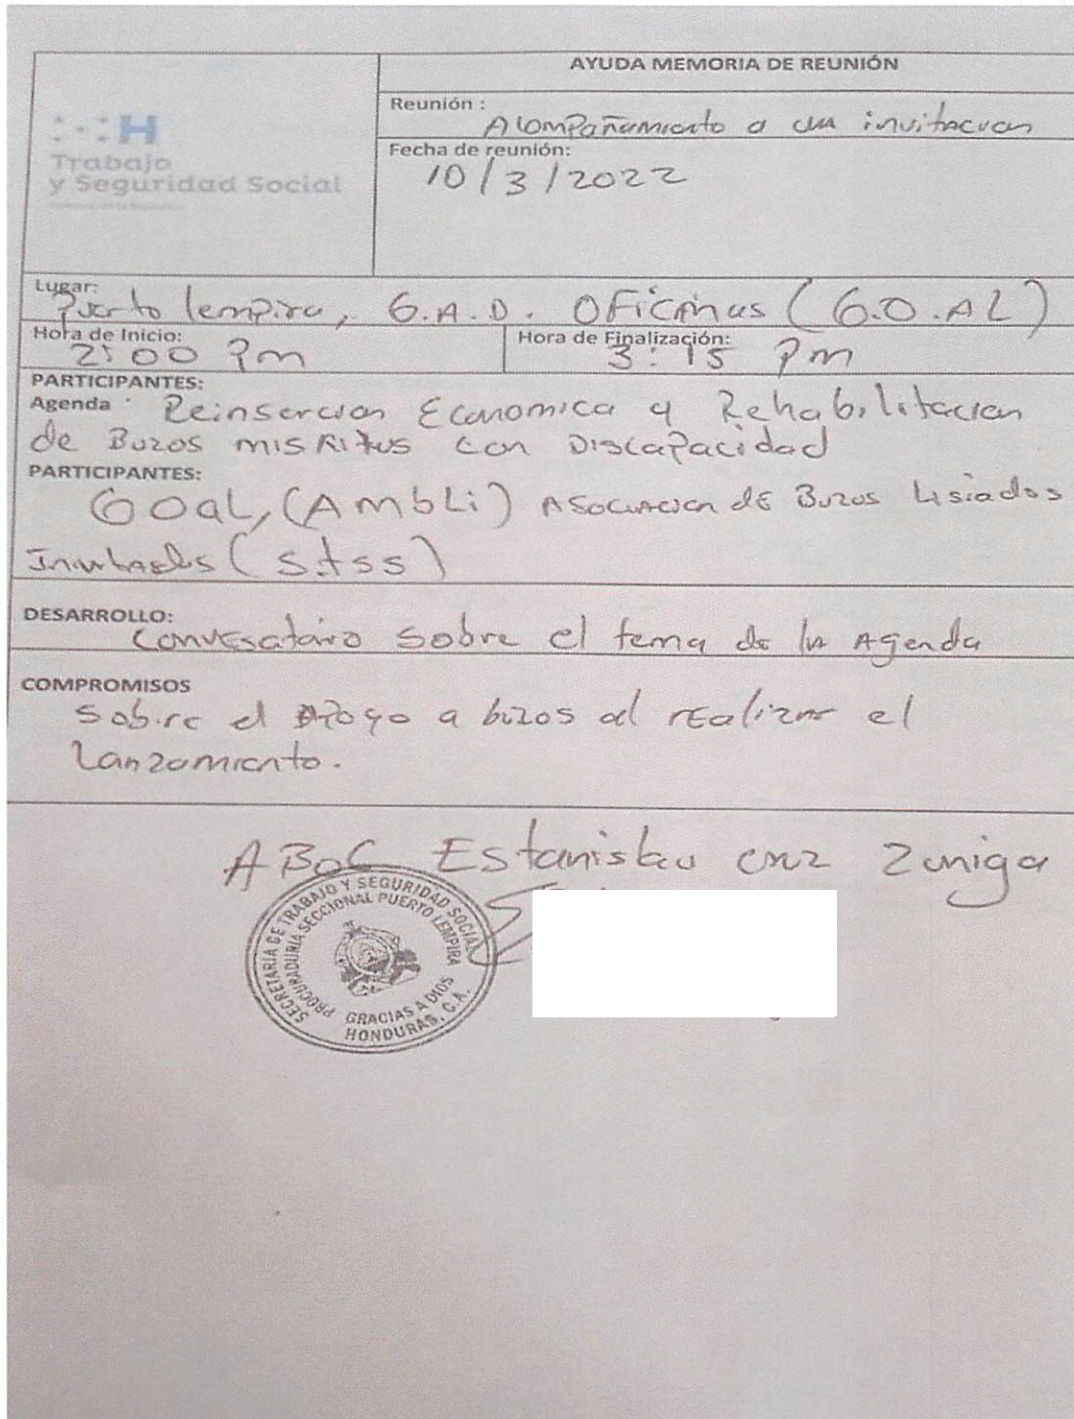 AYUDA MEMORIA DE REUNIÓN
Reunión :
Acompañamiento a una invitacion
Fecha de reunión:
10/3/2022
H
Trabajo
y Seguridad Social
Lugar:
Puerto lempira, G.A.D. OFicinas (G.O.AL)
Hora de Inicio:
2:00 Pm
Hora de Finalización:
3:15 Pm
PARTICIPANTES:
Agenda : Reinsercion Economica y Rehabilitacion
de Buzos misKitus con Discapacidad
PARTICIPANTES:
GOaL, (AmbLi) Asociacion de Buzos Lisiados
Invitados (S.tss)
DESARROLLO:
Convesatorio Sobre el tema de la Agenda
COMPROMISOS
Sobre el apoyo a buzos al realizar el
Lanzamiento.
ABOG Estanislau cruz Zuniga
SECRETARIA DE TRABAJO Y SEGURIDAD SOCIAL
PROCURADURIA SECCIONAL PUERTO LEMPIRA
GRACIAS A DIOS
HONDURAS, C.A.